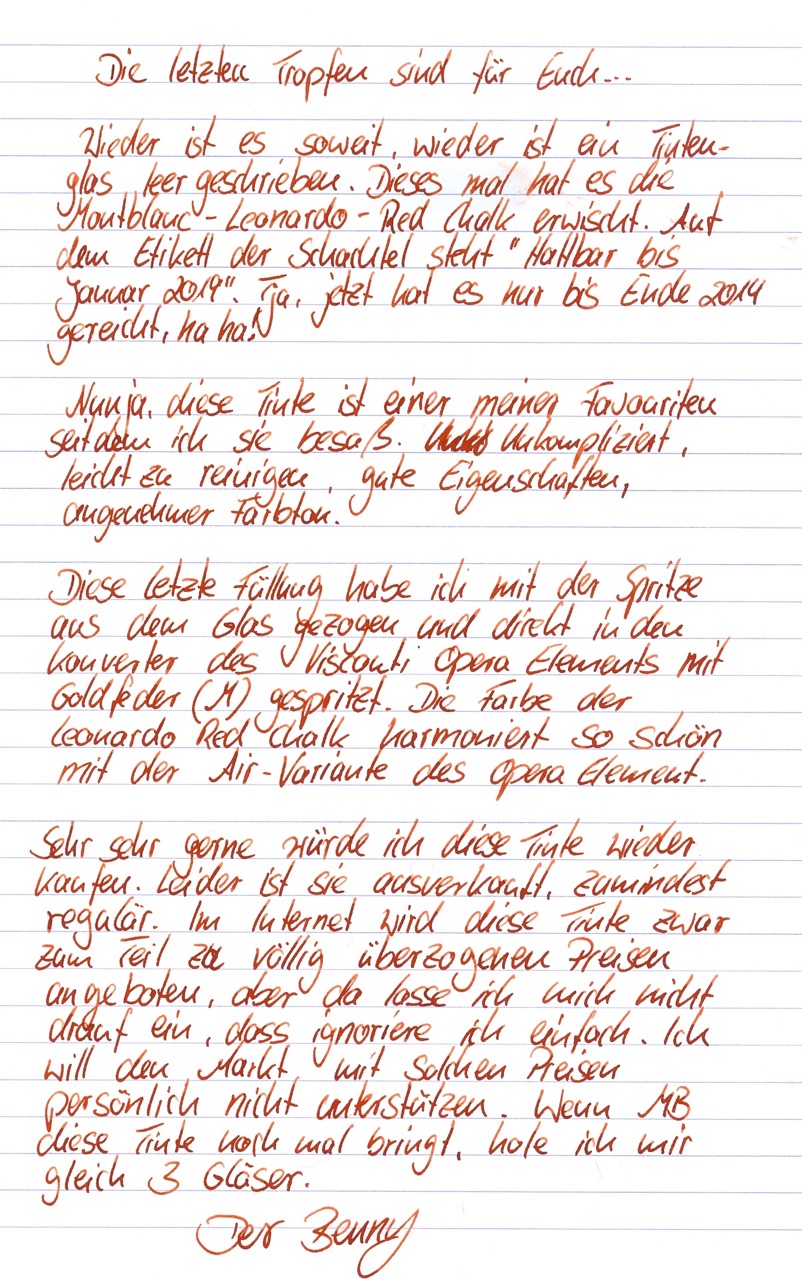 Die letzten Tropfen sind für Euch...
Wieder ist es soweit, wieder ist ein Tinten-
glas leer geschrieben. Dieses mal hat es die
Montblanc-Leonardo-Red Chalk erwischt. Auf
dem Etikett der Schachtel steht "Haltbar bis
Januar 2019". Tja, jetzt hat es nur bis Ende 2014
gereicht, ha ha!
Nun ja, diese Tinte ist einer meiner Favouriten
seitdem ich sie besaß. Unkompliziert,
leicht zu reinigen, gute Eigenschaften,
angenehmer Farbton.
Diese letzte Füllung habe ich mit der Spritze
aus dem Glas gezogen und direkt in den
Konverter des Visconti Opera Elements mit
Goldfeder (M) gespritzt. Die Farbe der
Leonardo Red Chalk harmoniert so schön
mit der Air-Variante des Opera Element.
Sehr sehr gerne würde ich diese Tinte wieder
kaufen. Leider ist sie ausverkauft, zumindest
regulär. Im Internet wird diese Tinte zwar
zum Teil zu völlig überzogenen Preisen
angeboten, aber da lasse ich mich nicht
drauf ein, dass ignoriere ich einfach. Ich
will den Markt mit solchen Preisen
persönlich nicht unterstützen. Wenn MB
diese Tinte noch mal bringt, hole ich mir
gleich 3 Gläser.
Der Benny